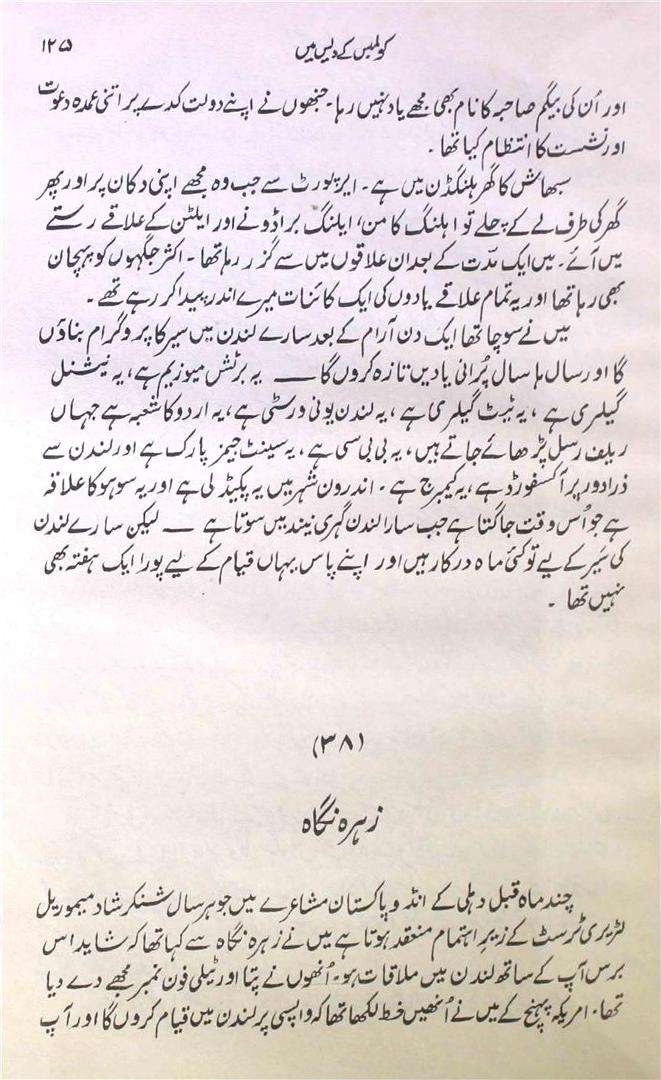 ۱۲۵
کولمبس کے دیس میں
اور اُن کی بیگم صاحبہ کا نام بھی مجھے یاد نہیں رہا۔ جنھوں نے اپنے دولت کدے پر اتنی عمدہ دعوت
اور نشست کا انتظام کیا تھا۔
سبھاش کا گھر ہلنگڈن میں ہے۔ ایرپورٹ سے جب وہ مجھے اپنی دکان پر اور پھر
گھر کی طرف لے کے چلے تو اہلنگ کامن، ایلنگ براڈوے اور ایلٹن کے علاقے رستے
میں آئے۔ میں ایک مدّت کے بعد ان علاقوں میں سے گزر رہا تھا۔ اکثر جگہوں کو پہچان
بھی رہا تھا اور یہ تمام علاقے یادوں کی ایک کائنات میرے اندر پیدا کر رہے تھے۔
میں نے سوچا تھا ایک دن آرام کے بعد سارے لندن میں سیر کا پروگرام بناؤں
گا اور سال ہا سال پُرانی یادیں تازہ کروں گا ــــ یہ برٹش میوزیم ہے، یہ نیشنل
گیلری ہے، یہ ٹیٹ گیلری ہے، یہ لندن یونی ورسٹی ہے، یہ اردو کا شعبہ ہے جہاں
ریلف رسل پڑھائے جاتے ہیں، یہ بی بی سی ہے، یہ سینٹ جیمز پارک ہے اور لندن سے
ذرا دور پر آکسفورڈ ہے، یہ کیمبرج ہے۔ اندرون شہر میں یہ پکیڈلی ہے اور یہ سوہو کا علاقہ
ہے جو اُس وقت جاگتا ہے جب سارا لندن گہری نیند میں سوتا ہے ــــ لیکن سارے لندن
کی سَیر کے لیے تو کئی ماہ درکار ہیں اور اپنے پاس یہاں قیام کے لیے پورا ایک ہفتہ بھی
نہیں تھا۔
(۳۸)
زہرہ نگاہ
چند ماہ قبل دہلی کے انڈو پاکستان مشاعرے میں جو ہر سال شنکر شاد میموریل
لٹریری ٹرسٹ کے زیرِ اہتمام منعقد ہوتا ہے میں نے زہرہ نگاہ سے کہا تھا کہ شاید اس
برس آپ کے ساتھ لندن میں ملاقات ہو۔ اُنھوں نے پتا اور ٹیلی فون نمبر مجھے دے دیا
تھا۔ امریکہ پہنچ کے میں نے اُنھیں خط لکھا تھا کہ واپسی پر لندن میں قیام کروں گا اور آپ